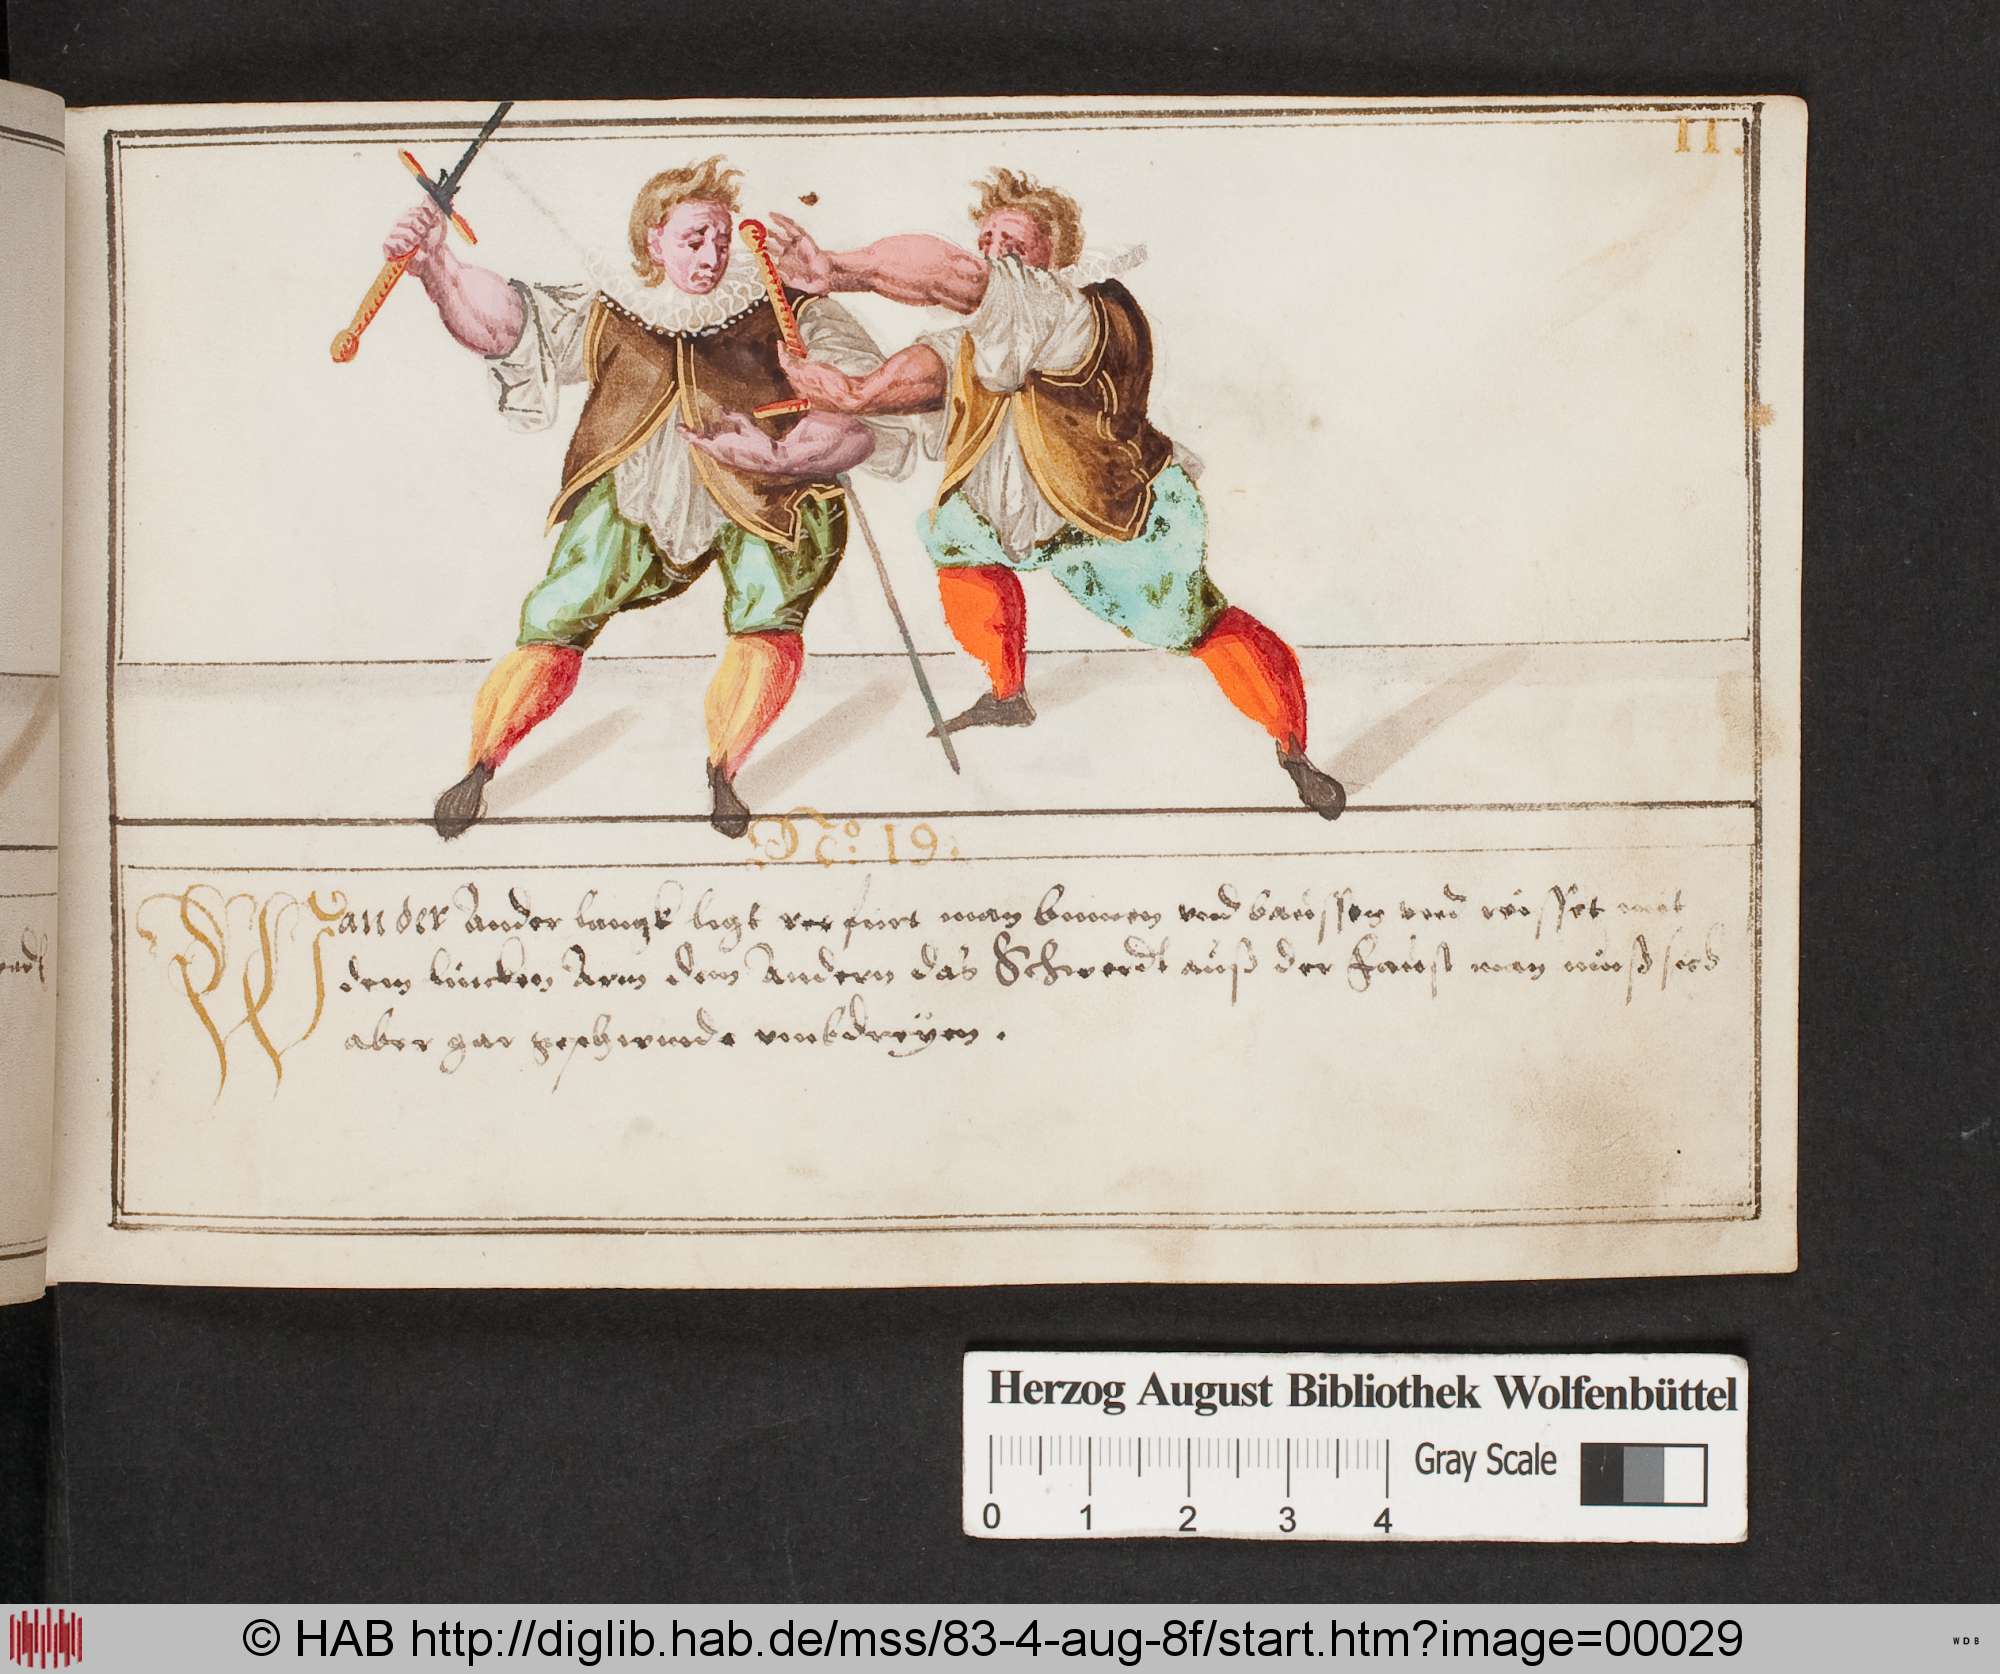 11.
No: 19.
Wan der Ander langk ligt verfurt man binnen vnd baussen vnd reisset mit
dem lincken Arm dem Andern das Schwerdt auß der Faust man muß sich
aber gar geschwinde vmbdreyen.
Herzog August Bibliothek Wolfenbüttel
Gray Scale
0 1 2 3 4
© HAB http://diglib.hab.de/mss/83-4-aug-8f/start.htm?image=00029
WDB